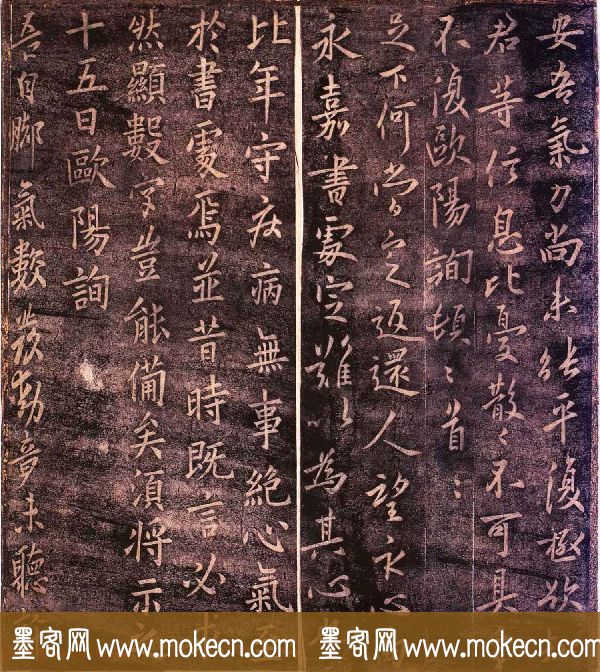 安吾氣力尚未能平復極欲
君等信息比憂散々不可具
不復歐陽詢頓〻首〻
足下何當定返還人望永
永嘉書處定難以為其心
比年守疾病無事絕心氣
於書處焉並昔時既言必
然顯數字豈能備矣須將示
十五日歐陽詢
吾自腳氣數發動竟未聽
墨客网 www.mokecn.com 墨客网 www.mokecn.com